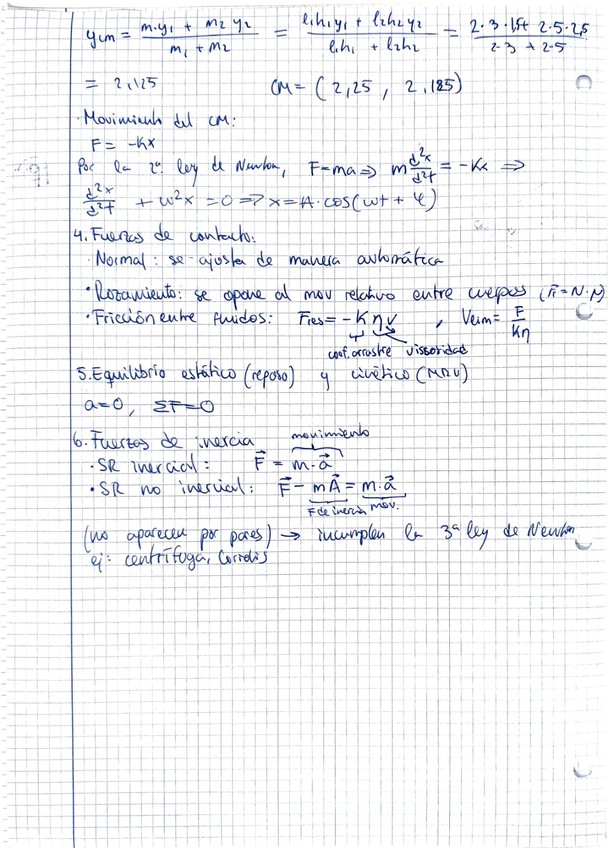 ycm = (m·y1 + m2 y2)/(m1 + m2) = (l1h1y1 + l2h2 y2)/(l1h1 + l2h2) = (2·3·1,5+ 2·5·2,5)/(2·3 + 2·5)
= 2,125 CM= (2,25, 2,125)
· Movimiento del CM:
F = -Kx
Por la 2ª ley de Newton, F=ma => m d²x/d²t = -Kx =>
d²x/d²t + ω²x = 0 => x = A·cos(ωt + φ)
4. Fuerzas de contacto:
· Normal: se ajusta de manera automática
· Rozamiento: se opone al mov relativo entre cuerpos (Fr=N·μ)
· Fricción entre fluidos: Fres = -K η v, Vlim = F/Kη
coef. arrastre viscosidad
5. Equilibrio estático (reposo) y cinético (MRU)
a=0, ΣF=0
6. Fuerzas de inercia movimiento
· SR inercial: F⃗ = m·a⃗
· SR no inercial: F⃗ - mA⃗ = m·a⃗
F de inercia mov.
(no aparecen por pares) → incumplen la 3ª ley de Newton
ej: centrífuga, Coriolis